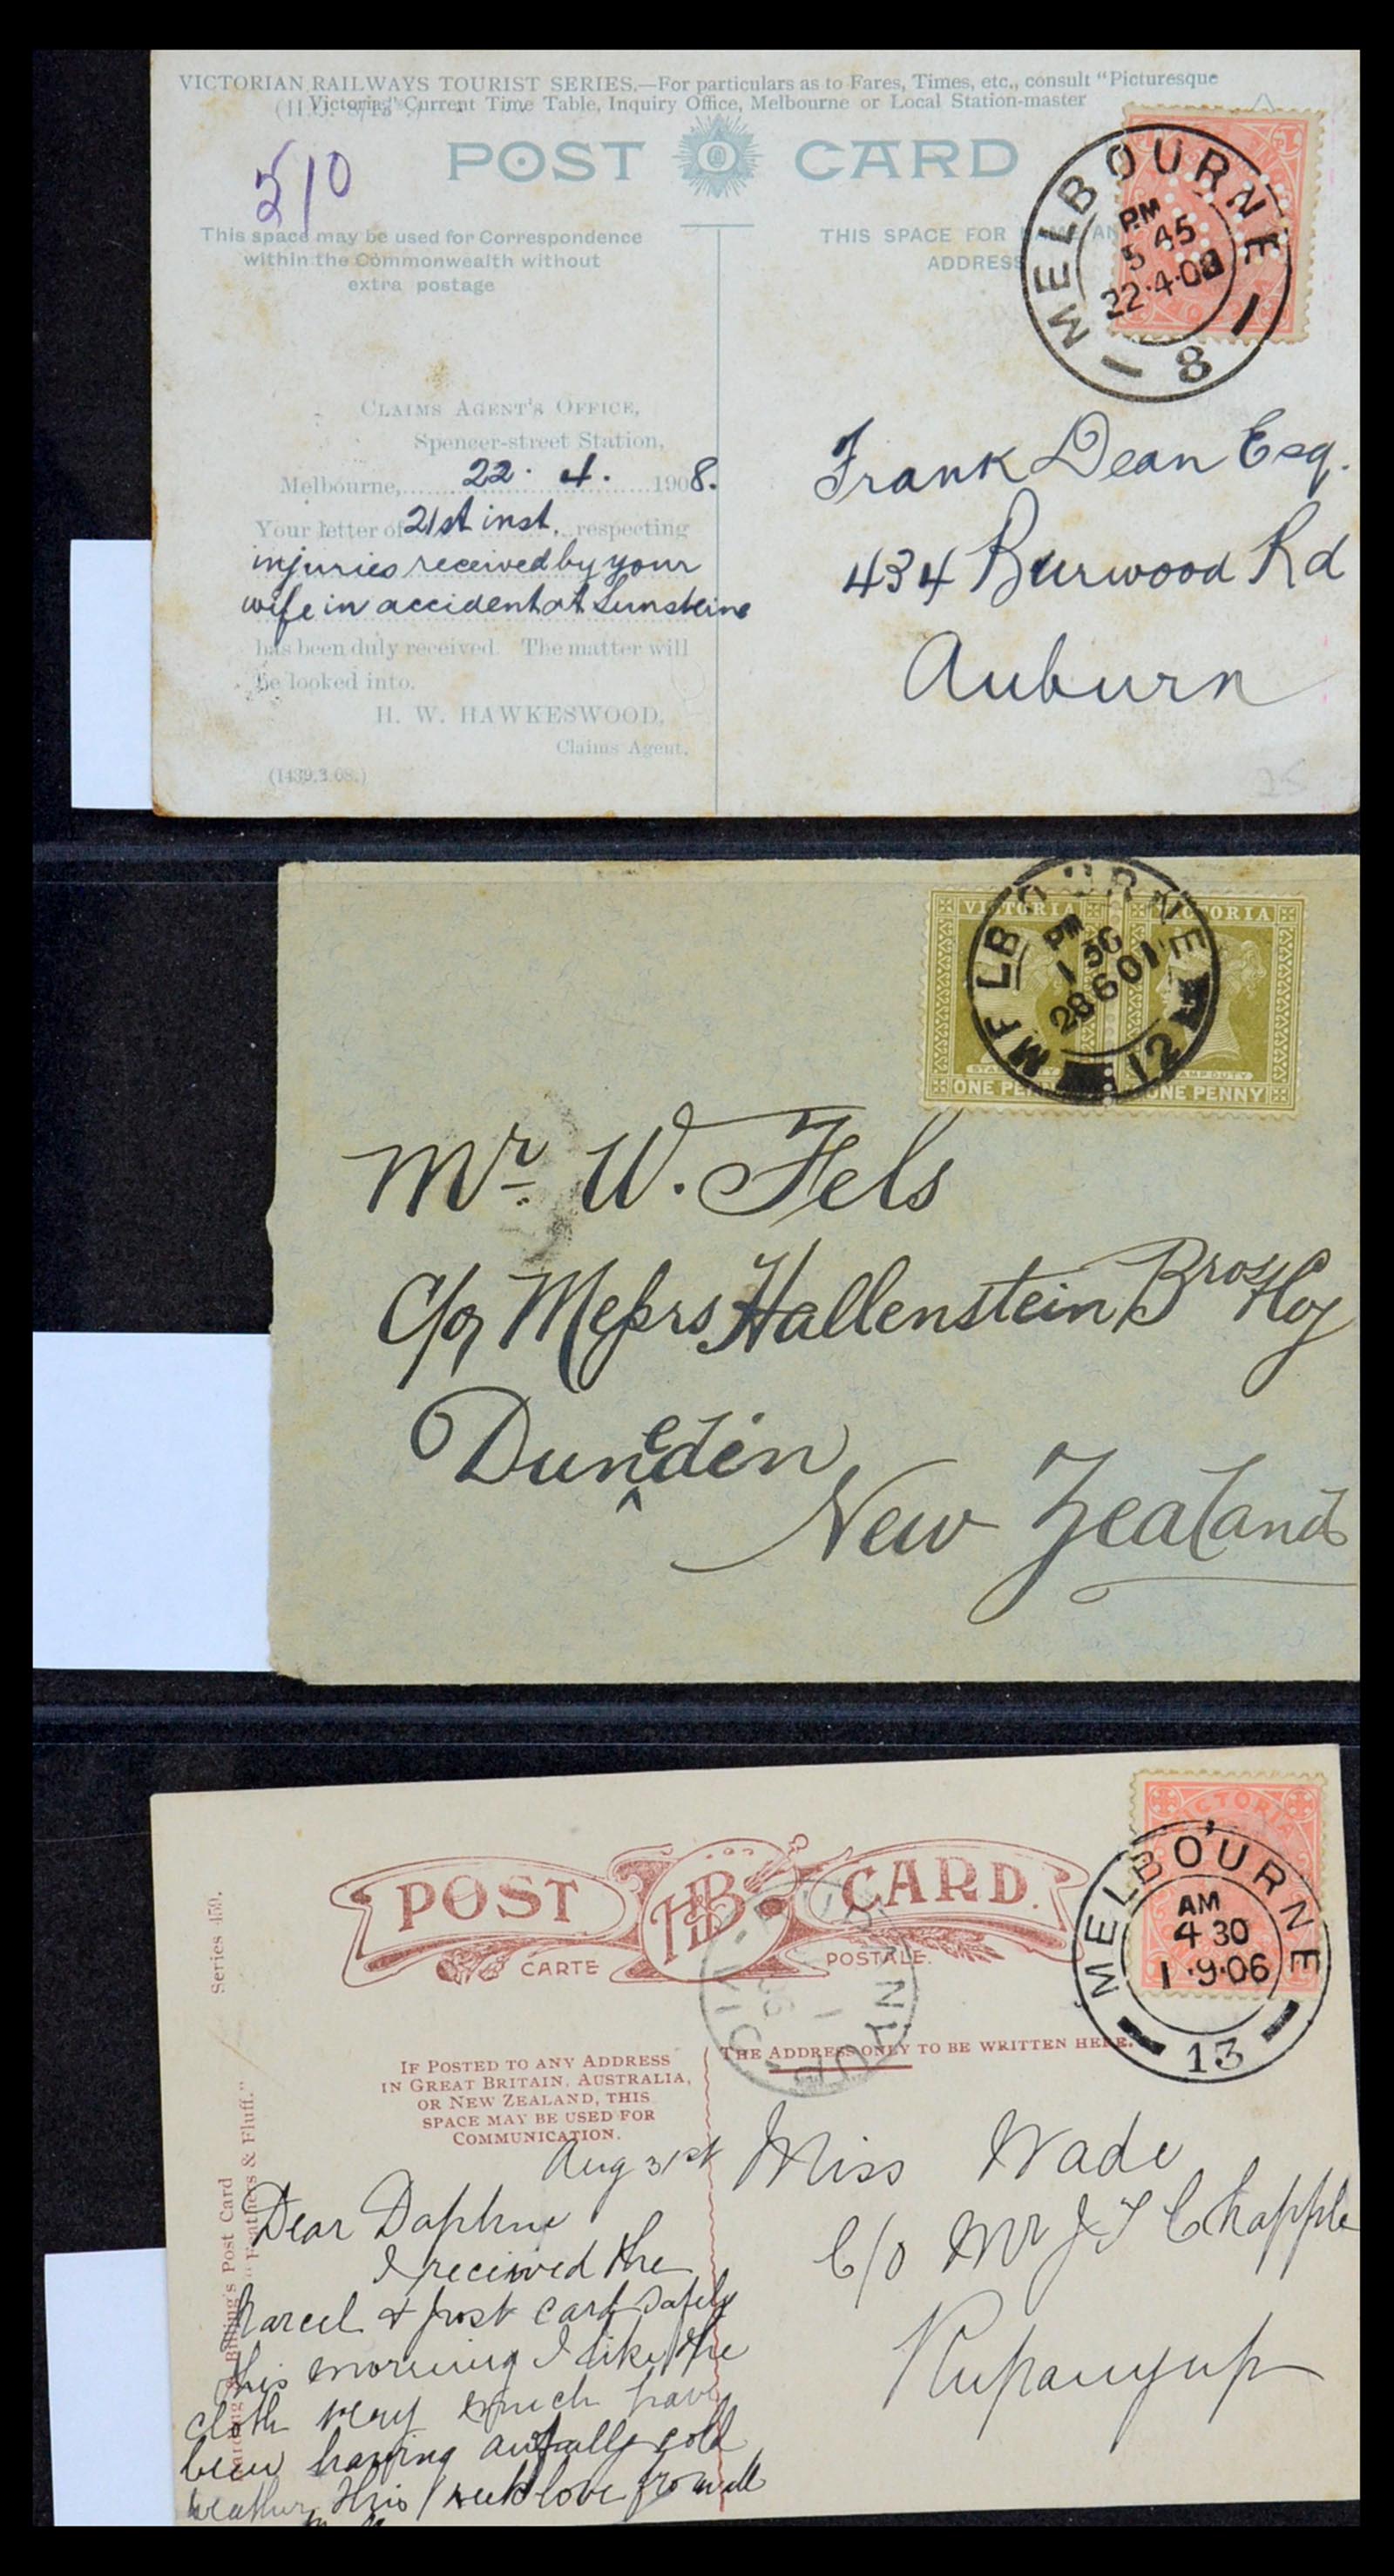 VICTORIAN RAILWAYS TOURIST SERIES.—For particulars as to Fares, Times, etc., consult "Picturesque
Victoria," Current Time Table, Inquiry Office, Melbourne or Local Station-master
POST CARD
5/0
This space may be used for Correspondence
within the Commonwealth without
extra postage
THIS SPACE FOR
ADDRESS
MELBOURNE
PM
5 45
22·4·08
8
CLAIMS AGENT'S OFFICE,
Spencer-street Station,
Melbourne, 22. 4. 1908.
Your letter of 21st inst. respecting
injuries received by your
wife in accident at Sunshine
has been duly received. The matter will
be looked into.
H. W. HAWKESWOOD,
Claims Agent.
(1439.3.08.)
Frank Dean Esq.
434 Burwood Rd
Auburn
VICTORIA VICTORIA
MELBOURNE
PM
1 30
28 6 01
12
STAMP DUTY
ONE PENNY ONE PENNY
Mr. W. Fels
C/o Messrs Hallenstein Bros & Coy
Dunedin
New Zealand
POST CARD.
H&B
CARTE POSTALE.
VICTORIA
MELBOURNE
AM
4 30
1·9·06
13
Series 459.
IF POSTED TO ANY ADDRESS
IN GREAT BRITAIN, AUSTRALIA,
OR NEW ZEALAND, THIS
SPACE MAY BE USED FOR
COMMUNICATION.
THE ADDRESS ONLY TO BE WRITTEN HERE.
Billing's Post Card
Feathers & Fluff."
Aug 31st
Dear Daphne
I received the
Parcel & post card safely
this morning I like the
cloth very much have
been having awfully cold
weather this week love from all
Miss Wade
C/o Mr J T Chapple
Rupanyup